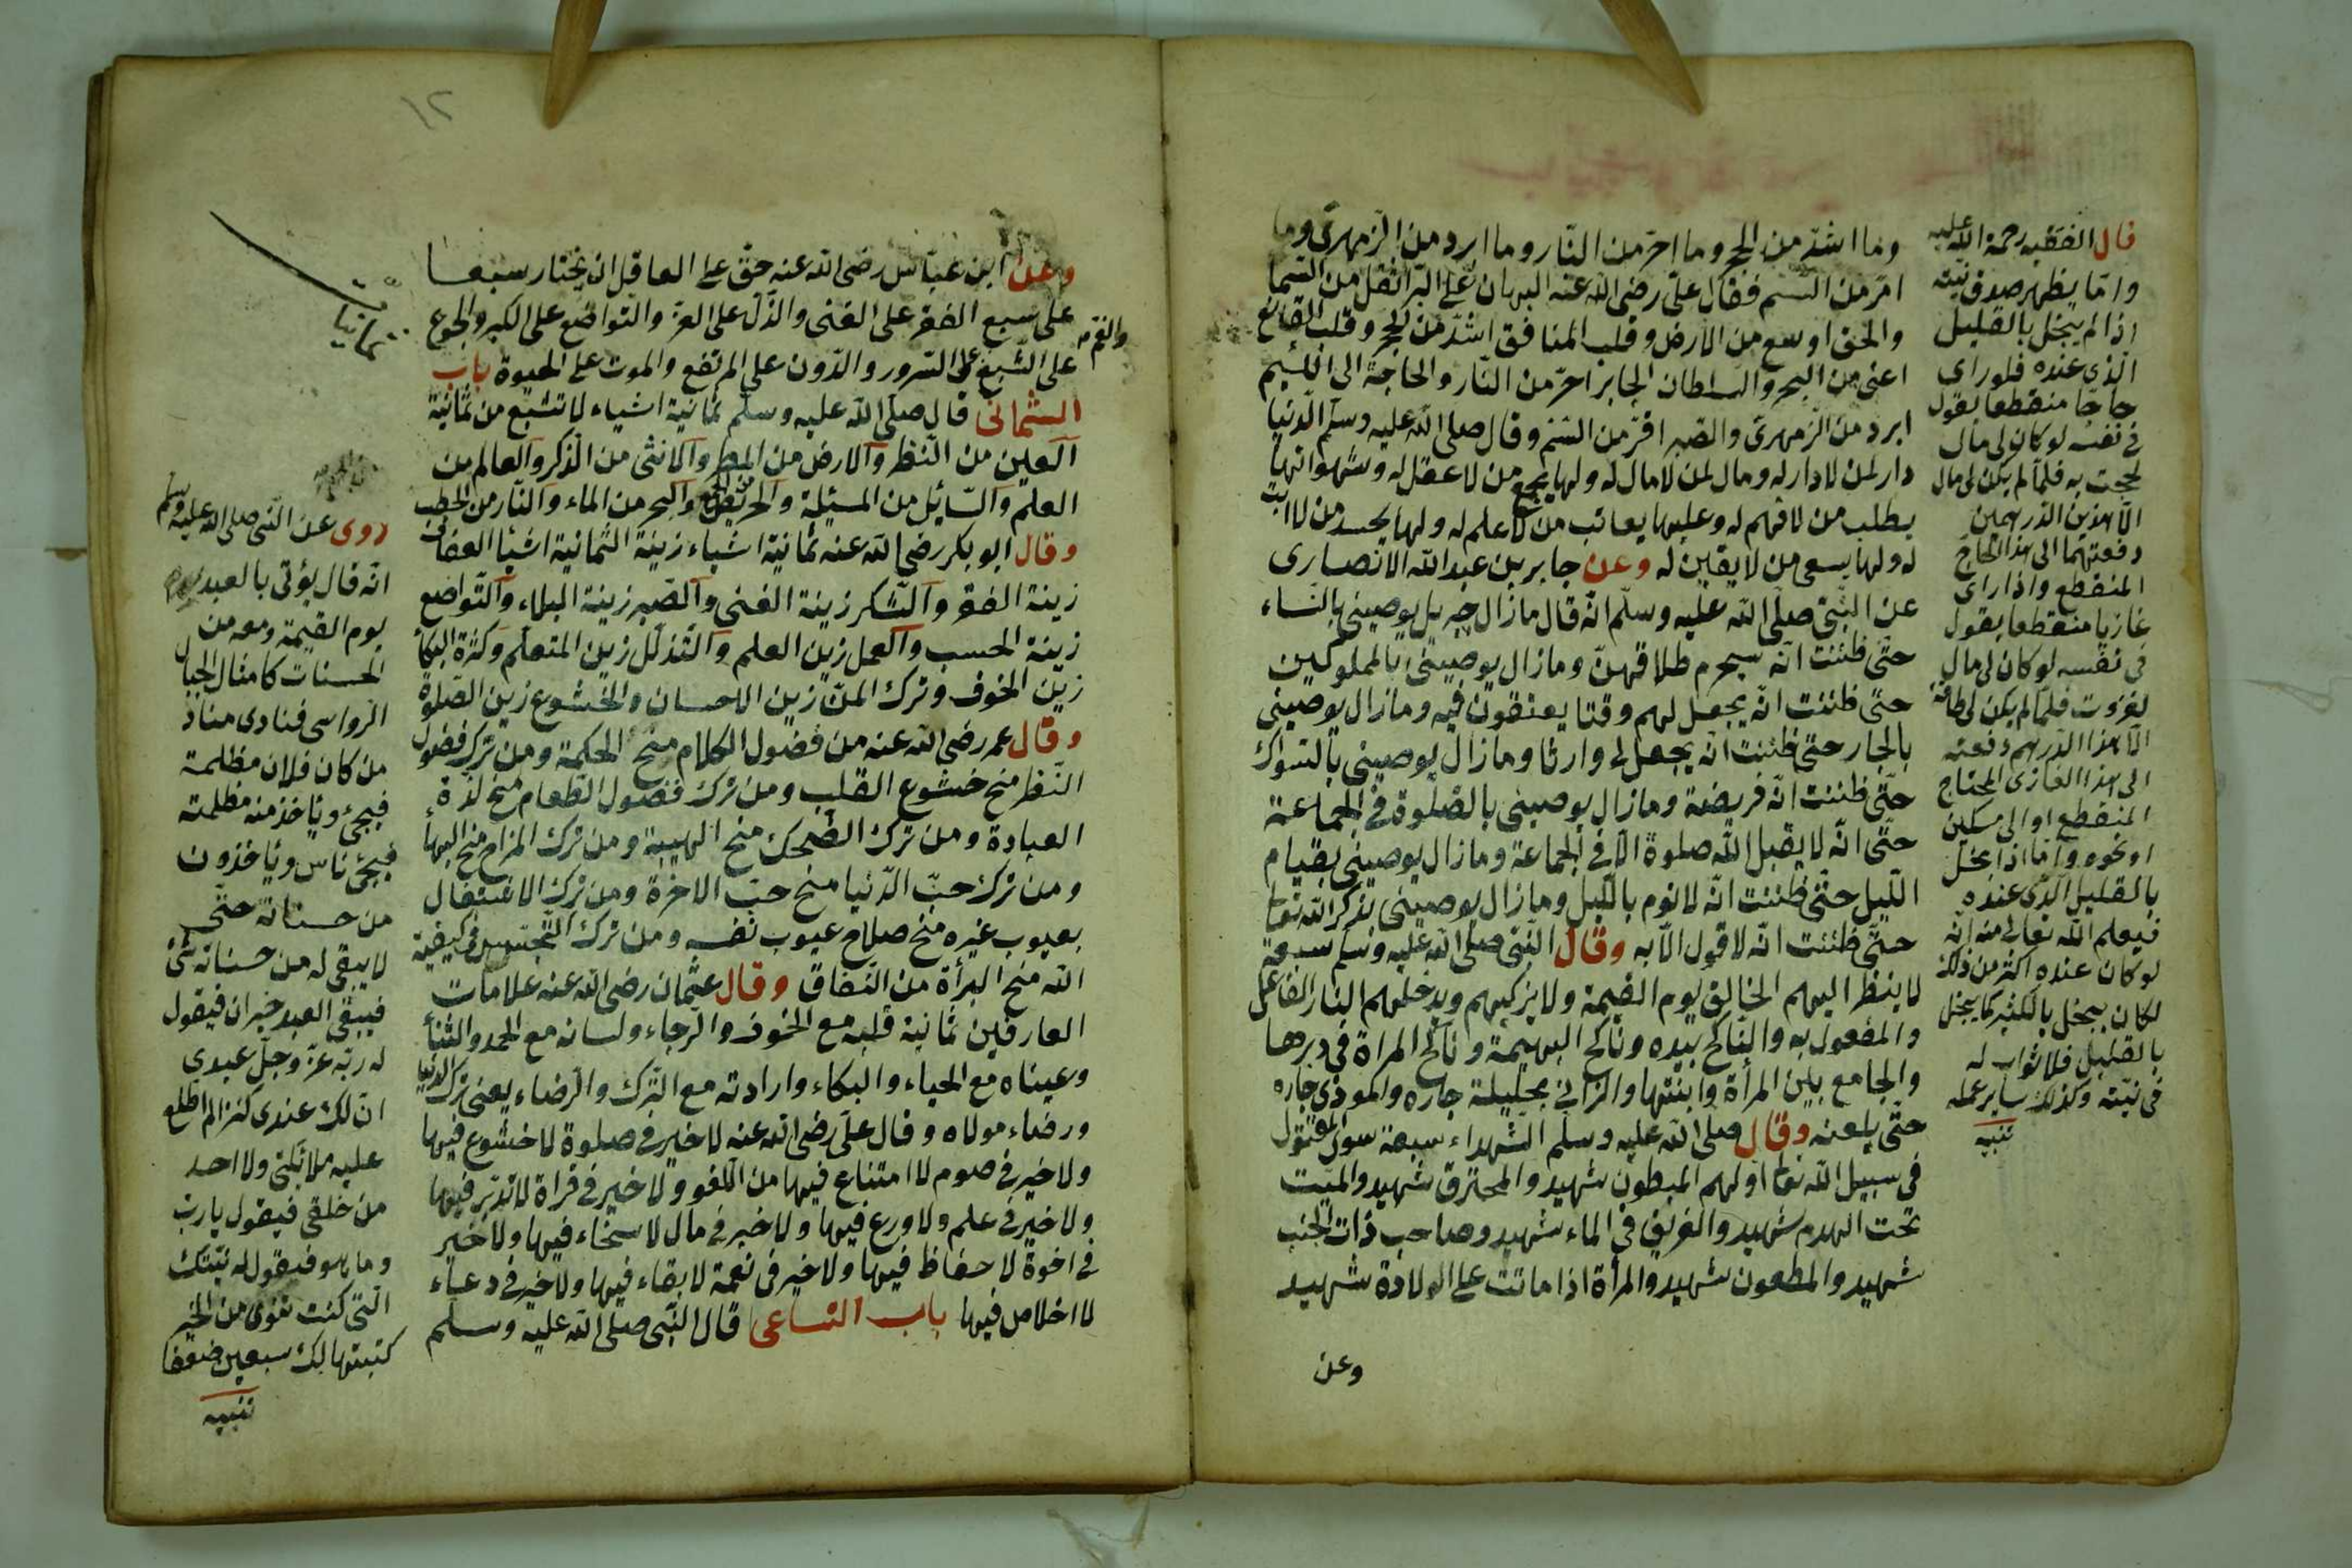 وما اشدّ من الحجر وما احرّ من النّار وما ابرد من الزّمهرى وما
امرّ من السّم فقال علىّ رضى الله عنه البهتان على البرّ اثقل من السّما
والحق اوسع من الارض وقلب المنافق اشدّ من الحجر وقلب القانع
اغنى من البحر والسلطان الجابر احرّ من النّار والحاجة الى اللّئيم
ابرد من الزّمهرى والصبر امرّ من السّم وقال صلى الله عليه وسلّم الدّنيا
دار لمن لا دار له ومال لمن لا مال له ولها يجمع من لا عقل له وشهواتها
يطلب من لا فهم له وعليها يعاتب من لا علم له ولها يحسد من لا
له ولها يسعى من لا يقين له وعن جابر بن عبد الله الانصارى
عن النّبىّ صلى الله عليه وسلّم انّه قال مازال جبريل يوصينى بالنّساء
حتّى ظننت انّه سيحرم طلاقهنّ ومازال يوصينى بالمملوكين
حتّى ظننت انّه يجعل لهم وقتا يعتقون فيه ومازال يوصينى
بالجار حتى ظننت انّه يجعل لى وارثا ومازال يوصينى بالسّواك
حتّى ظننت انّه فريضة ومازال يوصينى بالصّلوة فى الجماعة
حتّى انّه لا يقبل الله صلوة الّا فى الجماعة ومازال يوصينى بقيام
اللّيل حتّى ظننت انّه لا نوم باللّيل ومازال يوصينى بذكر الله تعالى
حتّى ظننت انّه لا قول الّا به وقال النّبى صلى الله عليه وسلم سبعة
لا ينظر اليهم الخالق يوم القيمة ولا يزكيهم ويدخلهم النار الفاعل
والمفعول به والنّاكح بيده وناكح البهيمة وناكح المراة فى دبرها
والجامع بين المرأة وابنتها والزانى بحليلة جاره والموذى جاره
حتّى يلعنه وقال صلى الله عليه وسلم الشّهداء سبعة سوى المقتول
فى سبيل الله تعالى اولهم المبطون شهيد والمحترق شهيد والميّت
تحت الهدم شهيد والغريق فى الماء شهيد وصاحب ذات الجنب
شهيد والمطعون شهيد والمرأة اذا ماتت على الولادة شهيد
وعن
قال الفقيه رحمة الله عليه
وامّا يظهر صدق نيته
اذا لم يبخل بالقليل
الّذى عنده فلو راى
حاجّا منقطعا يقول
فى نفسه لو كان لى مال
لحججت به فلمّا لم يكن لى مال
الّا هذين الدّرهمين
دفعتهما الى هذا الحاجّ
المنقطع واذا راى
غازيا منقطعا يقول
فى نفسه لو كان لى مال
لغزوت فلمّا لم يكن لى طاقة
الّا هذا الدّرهم دفعته
الى هذا الغازى المحتاج
المنقطع او الى مسكين
او نحوه وامّا اذا بخل
بالقليل الّذى عنده
فيعلم الله تعالى منه انّه
لو كان عنده اكثر من ذلك
لكان يبخل بالكثير كما يبخل
بالقليل فلا ثواب له
فى نيّته وكذلك ساير عمله
تنبيه
١٢
وعن ابن عبّاس رضى الله عنه حقّ على العاقل ان يختار سبعا
على سبع الفقر على الغنى والذّلّ على العزّ والتّواضع على الكبر والجوع
على الشّبع على السّرور والدّون على المرتفع والموت على الحيوة باب
والغمّ
الثّمانى قال صلّى الله عليه وسلّم ثمانية اشياء لا تشبع من ثمانية
العين من النّظر والارض من المطر والانثى من الذّكر والعالم من
العلم والسّائل من المسئلة والحريص من الجمع والبحر من الماء والنّار من الحطب
وقال ابو بكر رضى الله عنه ثمانية اشياء زينة الثّمانية اشيا العفاف
زينة الفقر والشّكر زينة الغنى والصّبر زينة البلاء والتّواضع
زينة الحسب والعمل زين العلم والتّذلّل زين المتعلّم وكثرة البكاء
زين الخوف وترك المنّ زين الاحسان والخشوع زين الصّلوة
وقال عمر رضى الله عنه من فضول الكلام منح الحكمة ومن ترك فضول
النّظر منح خشوع القلب ومن ترك فضول الطّعام منح لذّة
العبادة ومن ترك الضّحك منح الهيبة ومن ترك المزاح منح البهاء
ومن ترك حبّ الدّنيا منح حبّ الاخرة ومن ترك الاشتغال
بعيوب غيره منح صلاح عيوب نفسه ومن ترك التّجسّس فى كيفية
الله منح البرأة من النّفاق وقال عثمان رضى الله عنه علامات
العارفين ثمانية قلبه مع الخوف والرّجاء ولسانه مع الحمد والثّناء
وعيناه مع الحياء والبكاء وارادته مع التّرك والرّضاء يعنى ترك الدّنيا
ورضاء مولاه وقال علىّ رضى الله عنه لا خير فى صلوة لا خشوع فيها
ولا خير فى صوم لا امتناع فيها من اللّغو ولا خير فى قراة لا تدبّر فيها
ولا خير فى علم ولا ورع فيها ولا خير فى مال لا سخاء فيها ولا خير
فى اخوة لا حفاظ فيها ولا خير فى نعمة لا بقاء فيها ولا خير فى دعاء
لا اخلاص فيها باب التّساعى قال النّبى صلى الله عليه وسلم
ثمانيا
روى عن النّبى صلى الله عليه وسلم
انّه قال يؤتى بالعبد
يوم القيمة ومعه من
الحسنات كامثال الجبال
الرّواسى فنادى مناد
من كان فلان مظلمة
فيجئ ويأخذ منه مظلمته
فيجئ ناس ويأخذون
من حسناته حتّى
لا يبقى له من حسناته شئ
فيبقى العبد حيران فيقول
له ربّه عزّ وجلّ عبدى
انّ لك عندى كنز الم اطلع
عليه ملائكتى ولا احد
من خلقى فيقول يا ربّ
وما هو فيقول له نيّتك
الّتى كنت تنوى من الخير
كتبتها لك سبعين ضعفا
تنبيه